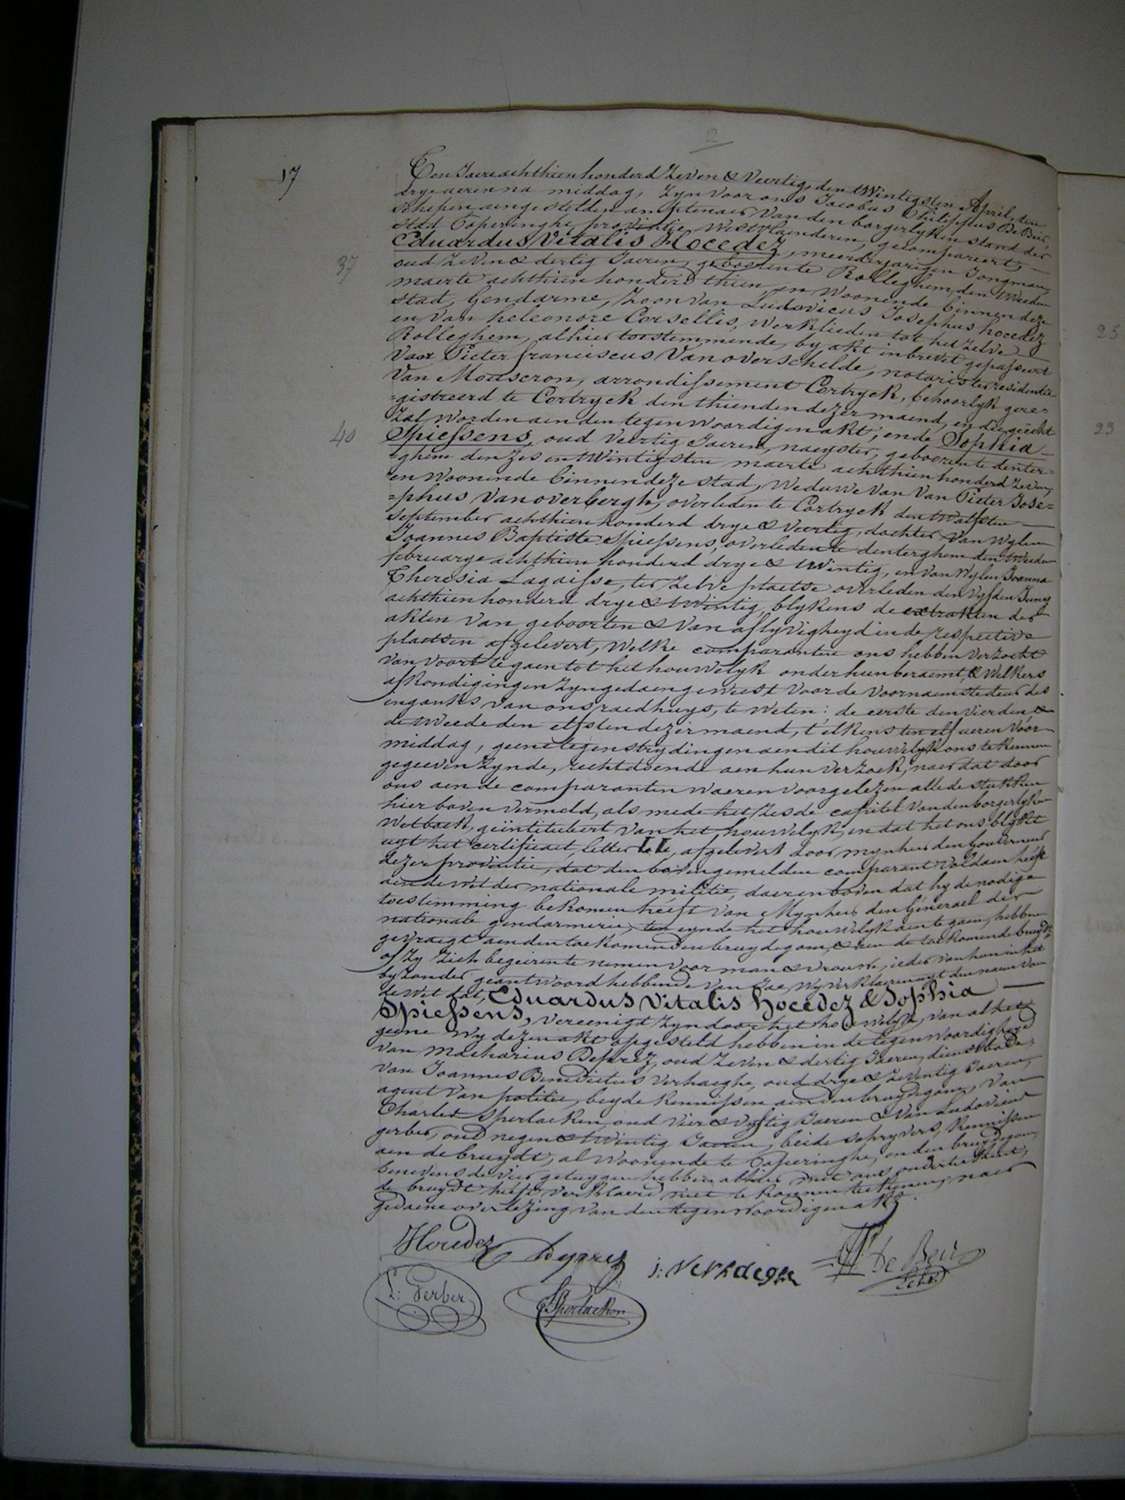 2
17
Ten Jaere achthien honderd Zeven & Veertig, den twintigsten April, ten
drye ueren na middag, Zyn voor ons Jacobus Philippus De Beir,
schepen aengestelden amptenaer van den borgerlyken stand der
Stad Poperinghe, provintie Westvlaenderen, gecompareert
Eduardus Vitalis Hocedez, meerderjarigen Jongman,
37
oud Zeven & dertig Jaeren, geboren te Rolleghem, den
maerte achthien honderd thien, en Woonende binnen deze
stad, Gendarme, Zoon van Ludovicus Josephus hocedez
en van heleonore Corsellis, Werklieden tot het zelve
Rolleghem, alhier toestemmende, by akt in brevet gepasseert
Voor Pieter franciscus Vanoverschelde, notaris ter residentie
Van Mouscron, arrondissement Cortryck, behoorlyk gere=
=gistreerd te Cortryck den thienden dezer maend, en die gehecht
Zal Worden aen den tegenwoordigen akt; ende Sophia
40
Spiessens, oud veertig Jaeren, naeyster, geboren te denter=
=ghem den zes en twintigsten maerte achthien honderd zeven,
en Woonende binnen deze stad, Weduwe van Pieter Jose=
=phus Vanoverbergh, overleden te Cortryck den twalfsten
September achthien honderd drye & veertig, dochter van Wylen
Joannes Baptiste Spiessens, overleden te denterghem den
februarye achthien honderd drye & twintig, en van Wylen Joanna
Theresia Lagaisse, ter zelve plaetse overleden den vyfden Juny
achthien honderd drye & twintig, blykens de extrakten der
akten van geboorten & van aflyvigheyd in de respective
plaetsen afgelevert, Welke comparanten ons hebben verzocht
van voort te gaen tot het houwelyk onder hun beraemt, & Welkers
afkondigingen zyn gedaen geweest voor de voornaemste deur des
ingancks van ons raedhuys, te Weten: de eerste den vierden &
de tweede den elfsten dezer maend, t'elkens ten elf ueren voor
middag, geene tegenstrydingen aen dit houwelyk ons te kennen
gegeeven zynde, recht doende aen hun verzoek, naer dat door
ons aen de comparanten waeren voorgelezen alle de stukken
hier boven vermeld, als mede het zesde capitel van den borgerlyken
Wetboek, geïntituleert van het houwelyk, en dat het ons blykt
uyt het certificaet letter, afgelevert door mynheer den gouverneur
dezer provintie, dat den bovengemelden comparant voldaen heeft
aen de Wet der nationale militie, daerenboven dat hy de noodige
toestemming bekomen heeft van Mynheer den Generael der
nationale gendarmerie, ten eynde het houwelyk aen te gaen, hebben
gevraegt aen den toekomenden bruydegom, & aen de toekomende bruydt,
of zy zich begeeren te nemen voor man & vrouw, ieder van hun in het
byzonder geantwoord hebbende van Jae, Wy verklaeren uyt den naem van
de Wet dat, Eduardus Vitalis hocedez & Sophia
Spiessens, vereenigt zyn door het houwelyk, van al het
geene Wy dezen akt opgesteld hebben in de tegenwoordigheyd
van Macharius Deprez, oud Zeven & dertig Jaeren, dienstbode,
van Joannes Benedictus Verhaeghe, oud drye & zeventig Jaeren,
agent van politie, beyde kennissen aen den bruydegom, van
Charles Sperlaeken, oud vier & vyftig Jaeren & van Ludovicus
gerber, oud negen & twintig Jaeren, beide schryvers, kennissen
aen de bruydt, al woonende te Poperinghe, en den bruydegom,
benevens de vier getuygen hebben alhier met ons onderteekend,
de bruydt heeft verklaerd niet te konnen teekenen, naer
gedaene overlezing van den tegenwoordigen akt.
Hocedez Deprez j: Verhaeghe De Beir
L: Gerber Sperlaeken